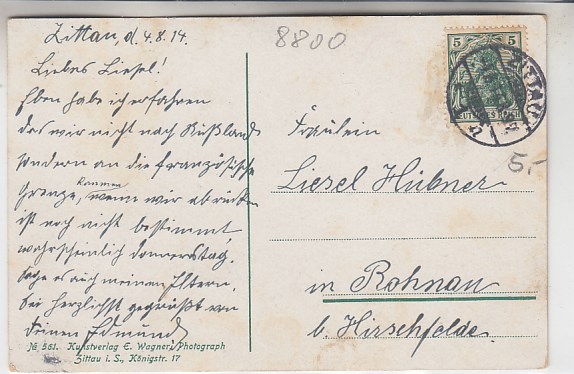 Zittau, d. 4.8.14.
Liebes Liesel!
Eben habe ich erfahren
das wir nicht nach Rußland
sondern an die französische
Grenze, kommen
wenn wir abrücken
ist noch nicht bestimmt,
wahrscheinlich donnerstag.
sage es auch meinen Eltern.
Sei herzlichst gegrüßt von
Deinen Edmund
№ 561. Kunstverlag E. Wagner, Photograph
Zittau i. S., Königstr. 17
8800
5 5
DEUTSCHES REICH
ZITTAU
5.-
Fräulein
Liesel Hübner
in Rohnau
b. Hirschfelde.